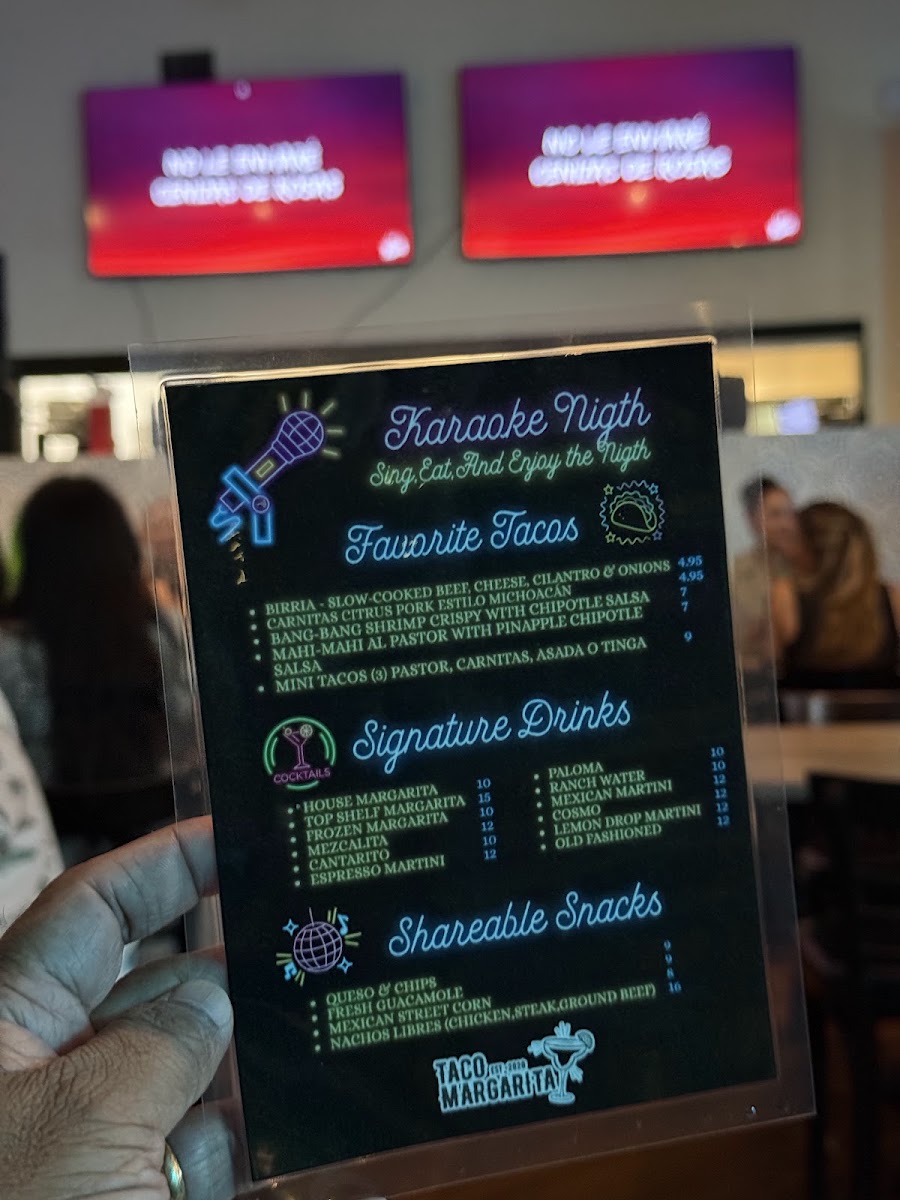 NO LE ENVIARÉ
CENIZAS DE ROSAS
NO LE ENVIARÉ
CENIZAS DE ROSAS
Karaoke Nigth
Sing,Eat,And Enjoy the Nigth
Favorite Tacos
• BIRRIA - SLOW-COOKED BEEF, CHEESE, CILANTRO & ONIONS 4.95
• CARNITAS CITRUS PORK ESTILO MICHOACÁN 4.95
• BANG-BANG SHRIMP CRISPY WITH CHIPOTLE SALSA 7
• MAHI-MAHI AL PASTOR WITH PINAPPLE CHIPOTLE 7
SALSA
• MINI TACOS (3) PASTOR, CARNITAS, ASADA O TINGA 9
COCKTAILS
Signature Drinks
• HOUSE MARGARITA 10
• TOP SHELF MARGARITA 15
• FROZEN MARGARITA 10
• MEZCALITA 12
• CANTARITO 10
• ESPRESSO MARTINI 12
• PALOMA 10
• RANCH WATER 10
• MEXICAN MARTINI 12
• COSMO 12
• LEMON DROP MARTINI 12
• OLD FASHIONED 12
Shareable Snacks
• QUESO & CHIPS 9
• FRESH GUACAMOLE 9
• MEXICAN STREET CORN 8
• NACHOS LIBRES (CHICKEN,STEAK,GROUND BEEF) 16
TACO EST. 2020
MARGARITA